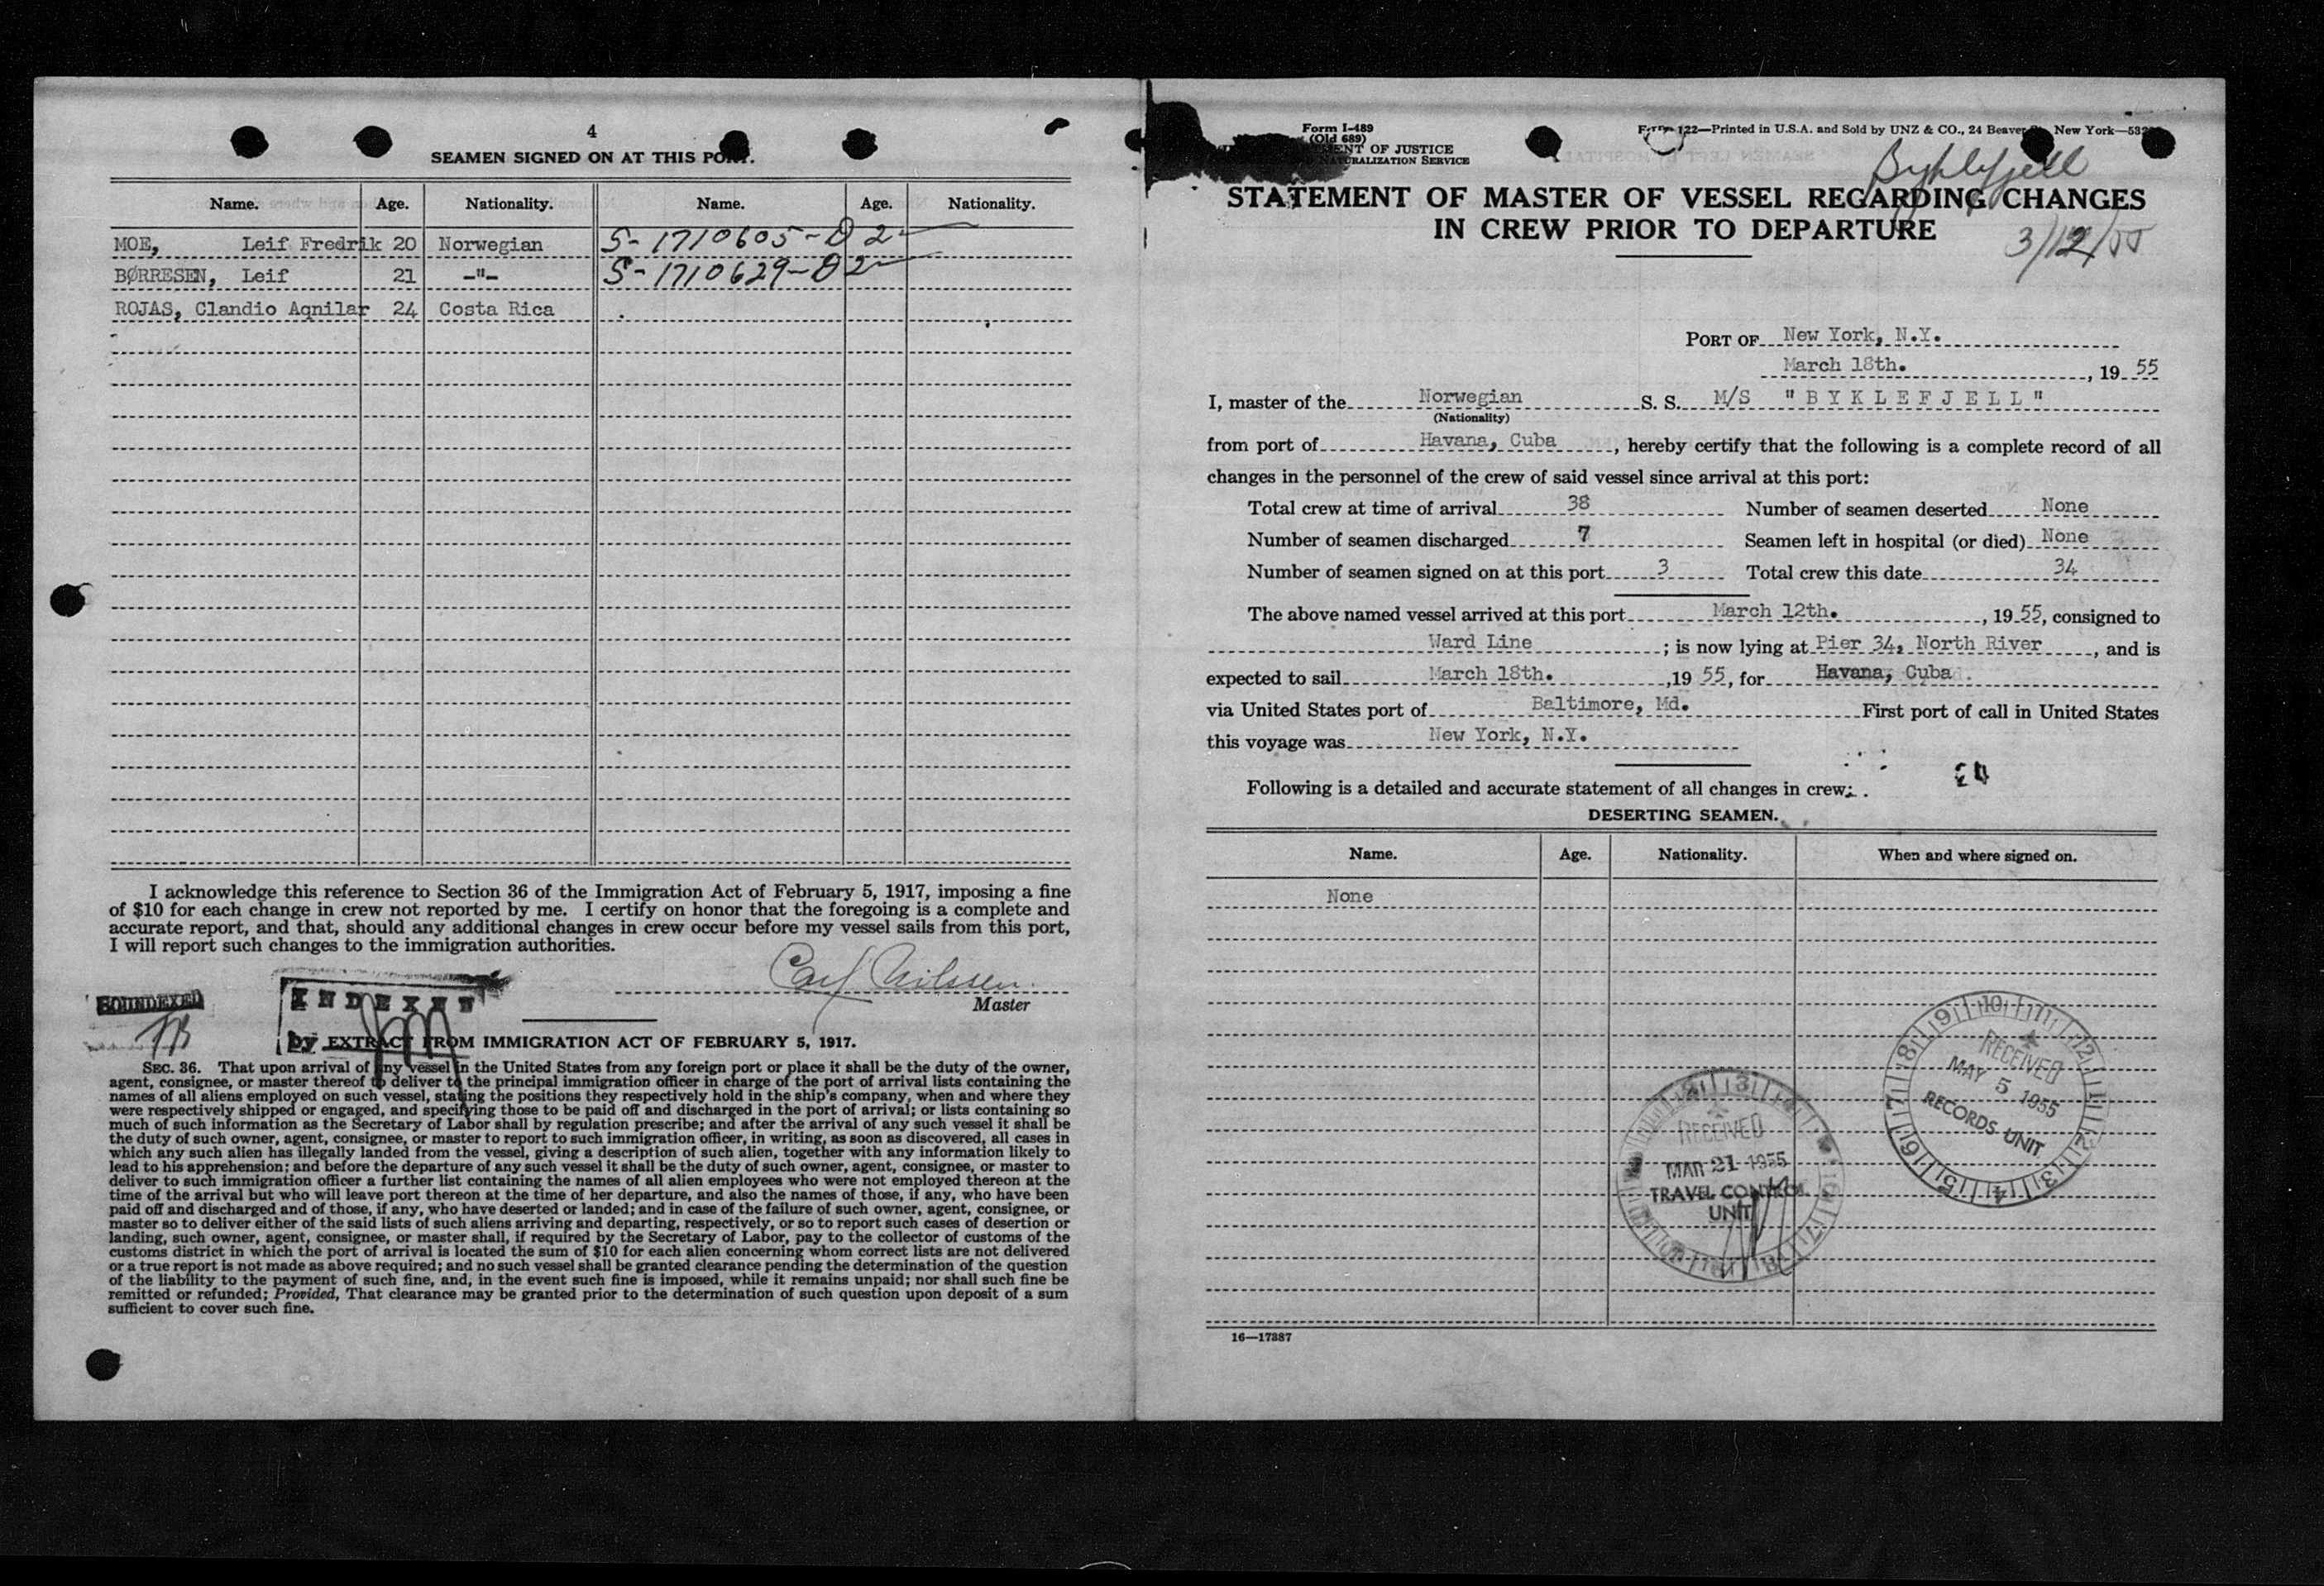 4
SEAMEN SIGNED ON AT THIS PORT.
Name. Age. Nationality. Name. Age. Nationality.
MOE, Leif Fredrik 20 Norwegian S-1710605-D2
BØRRESEN, Leif 21 -"- S-1710629-D2
ROJAS, Clandio Aqnilar 24 Costa Rica
I acknowledge this reference to Section 36 of the Immigration Act of February 5, 1917, imposing a fine
of $10 for each change in crew not reported by me. I certify on honor that the foregoing is a complete and
accurate report, and that, should any additional changes in crew occur before my vessel sails from this port,
I will report such changes to the immigration authorities.
Carl Nilssen
Master
SOUNDEXED
INDEXED
by
EXTRACT FROM IMMIGRATION ACT OF FEBRUARY 5, 1917.
SEC. 36. That upon arrival of any vessel in the United States from any foreign port or place it shall be the duty of the owner,
agent, consignee, or master thereof to deliver to the principal immigration officer in charge of the port of arrival lists containing the
names of all aliens employed on such vessel, stating the positions they respectively hold in the ship's company, when and where they
were respectively shipped or engaged, and specifying those to be paid off and discharged in the port of arrival; or lists containing so
much of such information as the Secretary of Labor shall by regulation prescribe; and after the arrival of any such vessel it shall be
the duty of such owner, agent, consignee, or master to report to such immigration officer, in writing, as soon as discovered, all cases in
which any such alien has illegally landed from the vessel, giving a description of such alien, together with any information likely to
lead to his apprehension; and before the departure of any such vessel it shall be the duty of such owner, agent, consignee, or master to
deliver to such immigration officer a further list containing the names of all alien employees who were not employed thereon at the
time of the arrival but who will leave port thereon at the time of her departure, and also the names of those, if any, who have been
paid off and discharged and of those, if any, who have deserted or landed; and in case of the failure of such owner, agent, consignee, or
master so to deliver either of the said lists of such aliens arriving and departing, respectively, or so to report such cases of desertion or
landing, such owner, agent, consignee, or master shall, if required by the Secretary of Labor, pay to the collector of customs of the
customs district in which the port of arrival is located the sum of $10 for each alien concerning whom correct lists are not delivered
or a true report is not made as above required; and no such vessel shall be granted clearance pending the determination of the question
of the liability to the payment of such fine, and, in the event such fine is imposed, while it remains unpaid; nor shall such fine be
remitted or refunded; Provided, That clearance may be granted prior to the determination of such question upon deposit of a sum
sufficient to cover such fine.
Form I-489
(Old 689)
OF JUSTICE
NATURALIZATION SERVICE
Form 122—Printed in U.S.A. and Sold by UNZ & CO., 24 Beaver New York—53
Byklefjell
STATEMENT OF MASTER OF VESSEL REGARDING CHANGES
IN CREW PRIOR TO DEPARTURE
3/12/55
PORT OF New York, N.Y.
March 18th. , 19 55
I, master of the Norwegian S. S. M/S "BYKLEFJELL"
(Nationality)
from port of Havana, Cuba , hereby certify that the following is a complete record of all
changes in the personnel of the crew of said vessel since arrival at this port:
Total crew at time of arrival 38 Number of seamen deserted None
Number of seamen discharged 7 Seamen left in hospital (or died) None
Number of seamen signed on at this port 3 Total crew this date 34
The above named vessel arrived at this port March 12th. , 19 55, consigned to
Ward Line ; is now lying at Pier 34, North River , and is
expected to sail March 18th. ,19 55, for Havana, Cuba
via United States port of Baltimore, Md. First port of call in United States
this voyage was New York, N.Y.
Following is a detailed and accurate statement of all changes in crew:
DESERTING SEAMEN.
Name. Age. Nationality. When and where signed on.
None
RECEIVED
MAY 5 1955
RECORDS UNIT
RECEIVED
MAR 21 1955
TRAVEL CONTROL
UNIT
16—17387